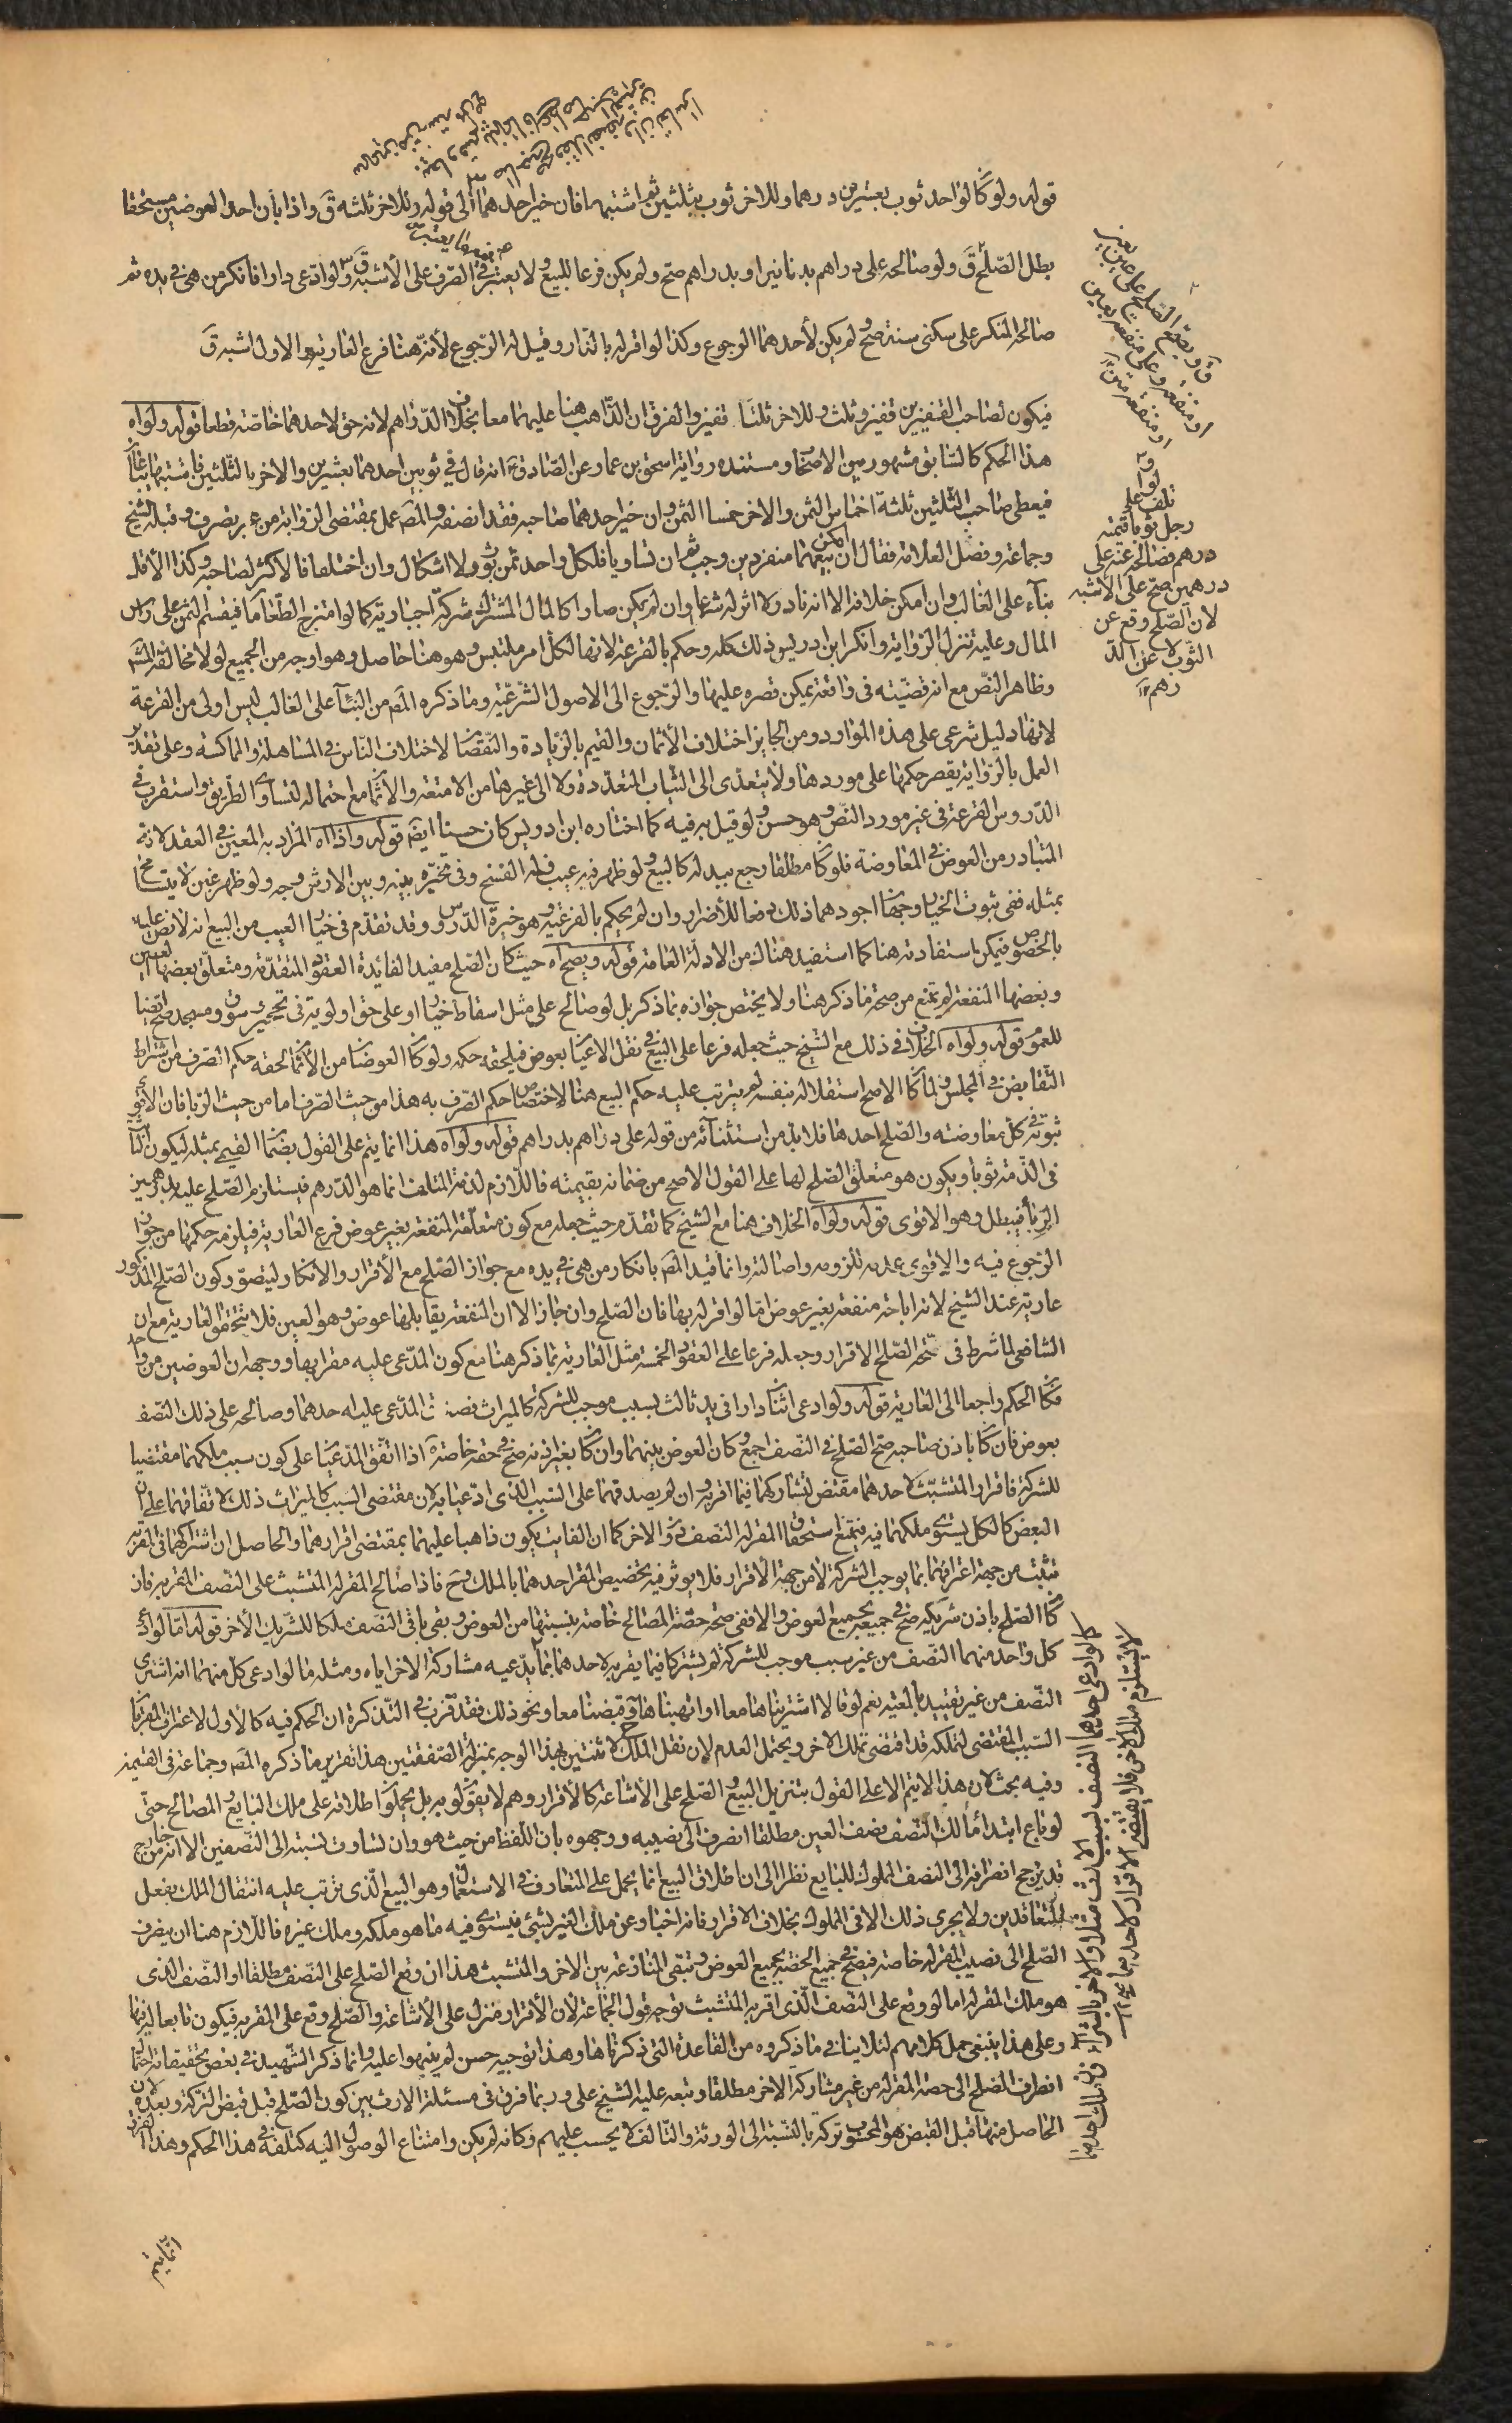 قوله ولو كان لواحد ثوب بعشرين درهما وللاخر ثوب بثلثين ثم اشتبها فان خير احدهما الى قوله وللاخر ثلثه ق واذا بان احد العوضين مستحقا
بطل الصلح ق ولو صالحه على دراهم بدنانير او بدراهم صح ولم يكن فرعا للبيع ولا يعتبر فيه الصرف على الأشبه ق ولو ادعى دارا فانكر من هى فى يده ثم
صالحه المنكر على سكنى سنة صح ولم يكن لأحدهما الرجوع وكذا لو اقر له بالدار وقيل له الرجوع لأنه هنا فرع العارية والاول اشبه ق
فيكون لصاحب القفيزين قفيز وثلث وللاخر ثلثا قفيز والفرق ان الذاهب هنا عليهما معا بخلاف الدراهم لانه حق لاحدهما خاصة قطعا قوله ولو اه
هذا الحكم كالسابق مشهور بين الاصحاب ومستنده رواية اسحق بن عمار عن الصادق ع انه قال فى ثوبين احدهما بعشرين والاخر بالثلثين فاشتبها يباعان
فيعطى صاحب الثلثين ثلثة اخماس الثمن والاخر خمسا الثمن وان خير احدهما صاحبه فقد انصفه والمص عمل بمقتضى الرواية من غير تصرف وقبله الشيخ
وجماعة وفصل العلامة فقال ان امكن بيعهما منفردين وجب ثم ان تساويا فلكل واحد ثمن ثوب ولا اشكال وان اختلفا فالاكثر لصاحبه وكذا الأقل
بناء على الغالب وان امكن خلافه الا انه نادر ولا اثر له شرعا وان لم يمكن صارا كالمال المشترك شركة اجبارية كما لو امتزج الطعامان فيقسم الثمن على راس
المال وعليه تنزل الرواية وانكر ابن ادريس ذلك كله وحكم بالقرعة لانها لكل امر ملتبس وهو هنا حاصل وهو اوجه من الجميع لولا مخالفة المش
وظاهر النص مع انه قضية فى واقعة يمكن قصره عليها والرجوع الى الاصول الشرعية وما ذكره المص من البناء على الغالب ليس اولى من القرعة
لانها دليل شرعى على هذه الموارد ومن الجايز اختلاف الأثمان والقيم بالزيادة والنقصان لاختلاف الناس فى المساهلة والمماكسة وعلى تقدير
العمل بالرواية يقصر حكمها على موردها ولا يتعدى الى الثياب المتعددة ولا الى غيرها من الامتعة والأثمان مع احتماله لتساوى الطريق واستقرب فى
الدروس القرعة فى غير مورد النص وهو حسن ولو قيل به فيه كما اختاره ابن ادريس كان حسنا ايض قوله واذا اه المراد به المعين فى العقد لانه
المتبادر من العوض فى المعاوضة فلو كان مطلقا رجع ببدله كالبيع ولو ظهر فيه عيب فله الفسخ وفى تخيره بينه وبين الارش وجه ولو ظهر غبن لا يتسامح
بمثله ففى ثبوت الخيار وجهان اجودهما ذلك دفعا للأضرار وان لم يحكم بالفرعية وهو خيرة الدروس وقد تقدم فى خيار العيب من البيع انه لا نص عليه
بالخصوص فيمكن استفادته هنا كما استفيد هناك من الادلة العامة قوله ويصح اه حيث كان الصلح مفيدا لفائدة العقود المتقدمة ومتعلق بعضها العين
وبعضها المنفعة لم تمنع من صحة ما ذكر هنا ولا يختص جوازه بما ذكر بل لو صالح على مثل اسقاط خيار او على حق اولوية فى تحجير وسوق ومسجد صح ايضا
للعموم قوله ولو اه الخلاف فى ذلك مع الشيخ حيث جعله فرعا على البيع فى نقل الاعيان بعوض فيلحقه حكمه ولو كان العوضان من الأثمان لحقه حكم الصرف من اشتراط
التقابض فى المجلس ولما كان الاصح استقلاله بنفسه لم يترتب عليه حكم البيع هنا لاختصاص حكم الصرف به هذا من حيث الصرف اما من حيث الربا فان الاقوى
ثبوته فى كل معاوضة والصلح احدها فلا بد من استثنائه من قوله على دراهم بدراهم قوله ولو اه هذا انما يتم على القول بضمان القيمى بمثله ليكون الثابت
فى الذمة ثوبا ويكون هو متعلق الصلح لها على القول الاصح من ضمانه بقيمته فاللازم لذمة المتلف انما هو الدرهم فيستلزم الصلح عليه بدرهمين
الربا فيبطل وهو الاقوى قوله ولو اه الخلاف هنا مع الشيخ كما تقدم حيث جعله مع كون متعلقه المنفعة بغير عوض فرع العارية فيلزمه حكمها من جواز
الرجوع فيه والاقوى عدمه للزومه واصالته وانما قيد المص بانكار من هى فى يده مع جواز الصلح مع الأقرار والأنكار ليتصور كون الصلح المذكور
عارية عند الشيخ لانه اباحة منفعة بغير عوض اما لو اقر له بها فان الصلح وان جاز الا ان المنفعة يقابلها عوض وهو العين فلا يتحقق العارية مع ان
الشافعى لما شرط فى صحة الصلح الاقرار وجعله فرعا على العقود الخمسة مثل العارية بما ذكر هنا مع كون المدعى عليه مقرا بها ووجه ان العوضين من واحد
فكان الحكم راجعا الى العارية قوله ولو ادعى اثنان دارا فى يد ثالث بسبب موجب للشركة كالميراث فصدق المدعى عليه احدهما وصالحه على ذلك النصف
بعوض فان كان باذن صاحبه صح الصلح فى النصف اجمع وكان العوض بينهما وان كان بغير اذنه صح فى حقه خاصة اذا اتفق المدعيان على كون سبب ملكهما مقتضيا
للشركة فاقرار المتشبث لاحدهما مقتض لتشاركهما فيما اقر به وان لم يصدقهما على السبب الذى ادعيا به لان مقتضى السبب كالميراث ذلك لاتفاقهما على ان
البعض كالكل يستوى ملكهما فيه فيمتنع استحقاق المقر له النصف دون الاخر كما ان الفايت يكون ذاهبا عليهما بمقتضى اقرارهما والحاصل ان اشتراكهما فى المقر به
تثبت من جهة اعترافهما بما يوجب الشركة لا من جهة الأقرار فلا يوثر فيه تخصيص المقر احدهما بالملك وح فاذا صالح المقر له المتشبث على النصف المقر به فان
كان الصلح باذن شريكه صح فى جميعه بجميع العوض والا ففى صحة حصة المصالح خاصة بنسبتها من العوض وبقى باقى النصف ملكا للشريك الأخر قوله اما لو ادعى
كل واحد منهما النصف من غير سبب موجب للشركة لم يشتركا فيما يقر به لاحدهما بما يدعيه مشاركة الاخر اياه ومثله ما لو ادعى كل منهما انه اشترى
النصف من غير تقييد بالمعية نعم لو قالا اشتريناها معا او اتهبناها وقبضنا معا ونحو ذلك فقد قرب فى التذكرة ان الحكم فيه كالأول لاعتراف المقر بان
السبب المقتضى لتملكه قد اقتضى تملك الاخر ويحتمل العدم لان نقل الملك لاثنين بهذا الوجه بمنزلة الصفقتين هذا تقرير ما ذكره المص وجماعة فى القسمين
وفيه بحث لان هذا لا يتم الا على القول بتنزيل البيع والصلح على الأشاعة كالأقرار وهم لا يقولون به بل يحملون اطلاقه على ملك البايع والمصالح حتى
لو باع ابتداء مالك النصف نصف العين مطلقا انصرف الى نصيبه ووجهوه بان اللفظ من حيث هو وان تساوت نسبته الى النصفين الا انه من خارج
قد يرجح انصرافه الى النصف المملوك للبايع نظرا الى ان اطلاق البيع انما يحمل على المتعارف فى الاستعمال وهو البيع الذى يترتب عليه انتقال الملك بفعل
المتعاقدين ولا يجرى ذلك الا فى المملوك بخلاف الاقرار فانه اخبار عن ملك الغير بشئ فيستوى فيه ما هو ملكه وملك غيره فاللازم هنا ان يصرف
الصلح الى نصيب المقر له خاصة فيصح فى جميع الحصة بجميع العوض وتبقى المنازعة بين الاخر والمتشبث هذا ان وقع الصلح على النصف مطلقا او النصف الذى
هو ملك المقر له اما لو وقع على النصف الذى اقر به المتشبث توجه قول الجماعة لأن الأقرار منزل على الأشاعة والصلح وقع على المقر به فيكون تابعا له فيهما
وعلى هذا ينبغى حمل كلامهم لئلا ينافى ما ذكروه من القاعدة التى ذكرناها وهذا توجيه حسن لم ينبهوا عليه وانما ذكر الشهيد فى بعض تحقيقاته احتمال
انصراف الصلح الى حصة المقر له من غير مشاركة الاخر مطلقا وتبعه عليه الشيخ على وربما فرق فى مسئلة الارث بين كون الصلح قبل قبض التركة وبعده لان
الحاصل منها قبل القبض هو المحسوب تركة بالنسبة الى الورثة والتالف لا يحسب عليهم وكانه لم يكن وامتناع الوصول اليه كتلفه فى هذا الحكم وهذا الفرق
ق ويصح الصلح على عين بعين
او منفعة وعلى منفعة بعين
او منفعة متن
ولو
تلف على
رجل ثوبا قيمته
درهم فصالحه عنه على
درهمين صح على الأشبه
لان الصلح وقع عن
الثوب لا عن الد
رهم
انما يتم